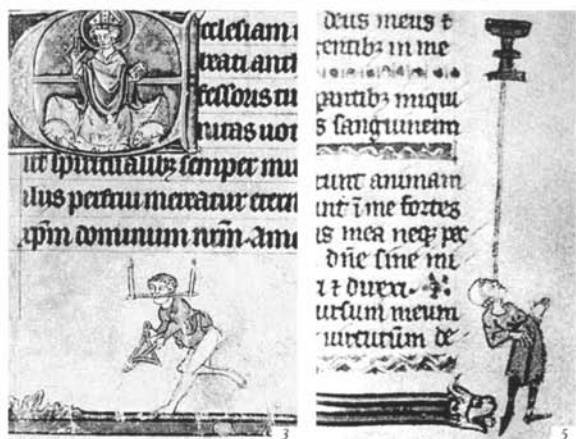 cclesiam
fessoris tu
ut spiritualibꝫ semper mu
perfrui mereatur etern
xp̄m dominum nr̄m. Am
3
deus meus ⁊
gentibꝫ in me
rantibꝫ iniqui
s sanguineum
animam
unt ī me fortes
mea neqꝫ pec
dn̄e sine ini
⁊ direxi
ursum meum
uirtutum de
5